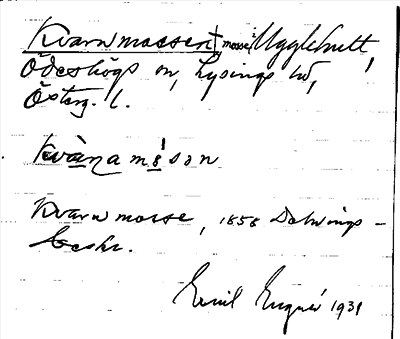 Kvarnmossen, mosse, Ugglehult,
Ödeshögs sn, Lysings hd,
Österg. l.
kvà̱ṉa m ọ̀ son
Kvarnmosse, 1858 Delnings-
beskr.
Emil 1931